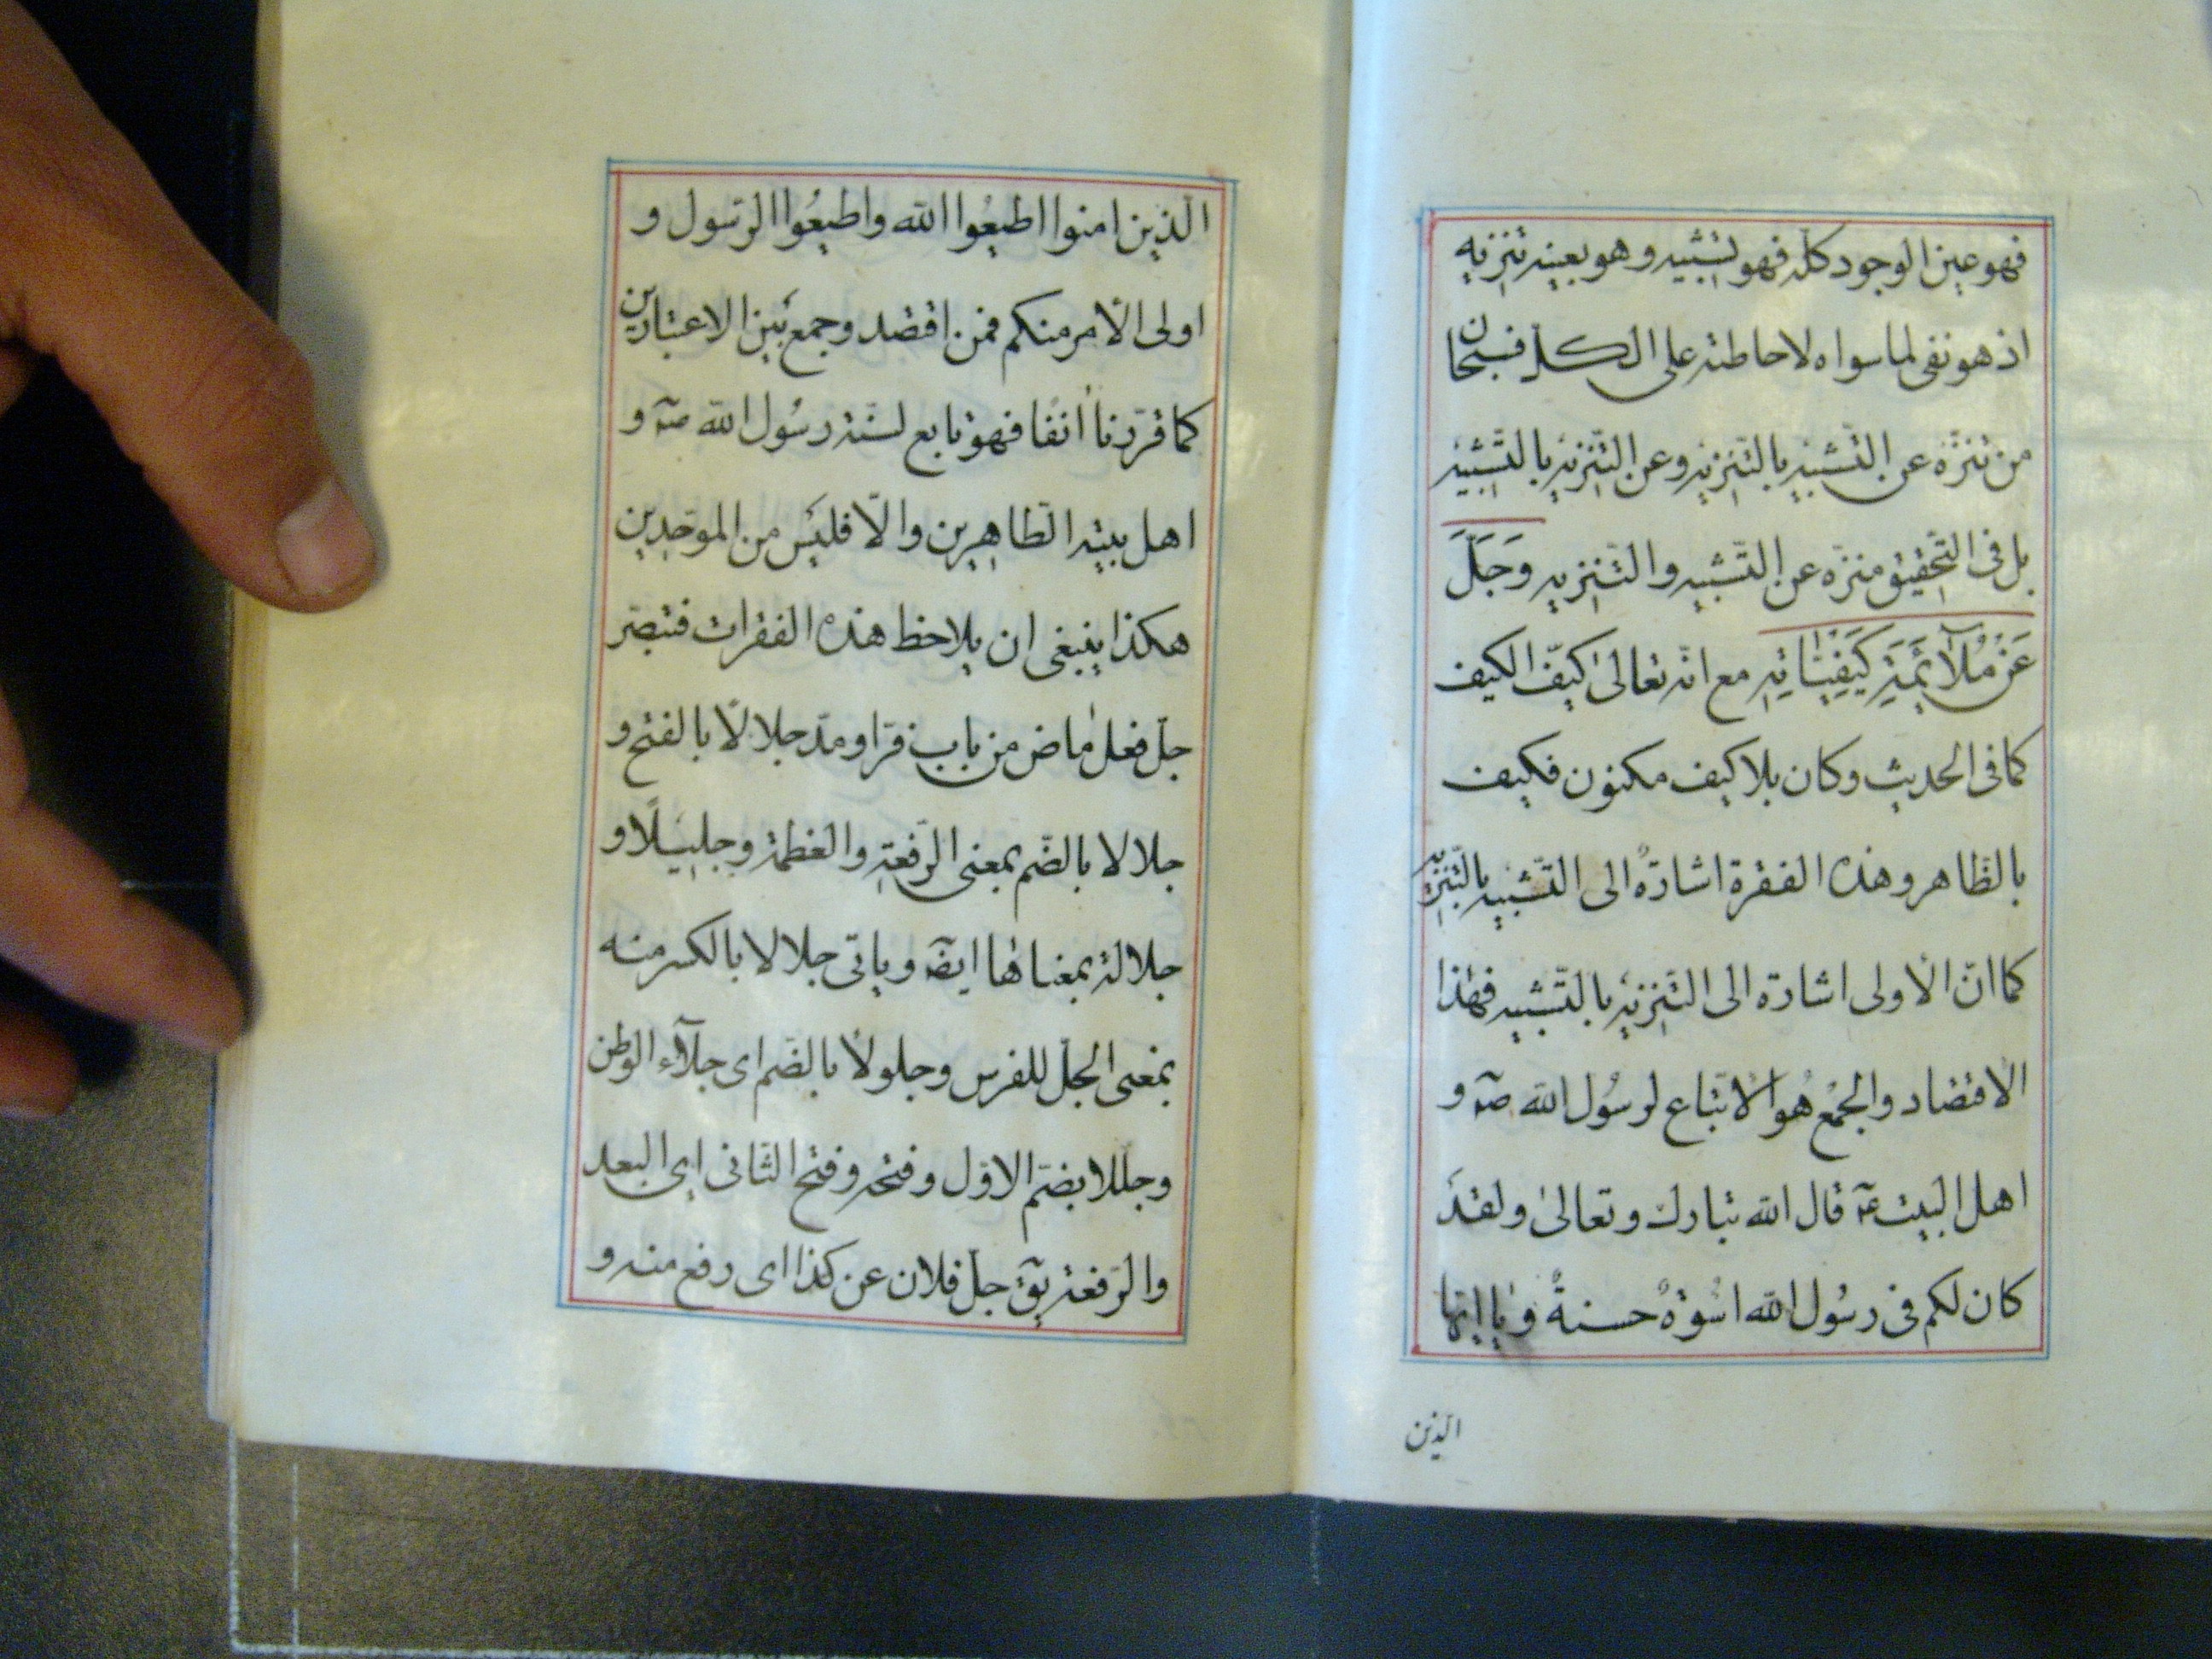 فهو عين الوجود كله فهو تشبيه و هو بعينه تنزيه
اذ هو نفى لما سواه لاحاطته على الكل فسبحان
من تنزّه عن التّشبيه بالتّنزيه و عن التّنزيه بالتّشبيه
بل فى التّحقيق منزّه عن التّشبيه و التّنزيه وَجَلَّ
عَنْ مُلآئَمَةِ كَيْفِيّٰاتِهِ مع انّه تعالىٰ كيّف الكيف
كما فى الحديث و كان بلا كيف مكنون فكيف
بالظّاهر و هذه الفقرة اشارةٌ الى التّشبيه بالتّنزيه
كما انّ الاولى اشارة الى التّنزيه بالتّشبيه فهٰذا
الاقتصاد و الجمْع هُو الاتّباع لرسُول الله صۤه و
اهل البَيت عۤه قال الله تبارك و تعالىٰ و لقدَ
كان لكم فى رسُول الله اسُوةٌ حسنةٌ و يٰا ايّها
الّذين
الّذين امنوا اطيعُوا الله و اطيعُوا الرّسول و
اولى الأمر منكم فمن اقتصد و جمع بَين الاعتبارين
كما قرّرنا اٰنفًا فهو تابع لسنّة رسُول الله صۤه و
اهل بيته الطّاهرين و الّا فليَس من الموحّدين
هكذا ينبغى ان يلاحظ هذه الفقرات فتبصّر
جلّ فعل مٰاض من باب فرّ او مدّ جلالًا بالفتح و
جلالا بالضّم بمعنى الرّفعة و العظمة و جليلًا و
جلالة بمعناها ايضۤه و ياتى جلالا بالكسر منه
بمعنى الجلّ للفرس و جلولًا بالضّم اى جلآء الوطن
و جللا بضمّ الاوّل و فتحه و فتح الثّانى اى البعد
و الرّفعة يقۤ جلّ فلان عن كذا اى رفع منه و